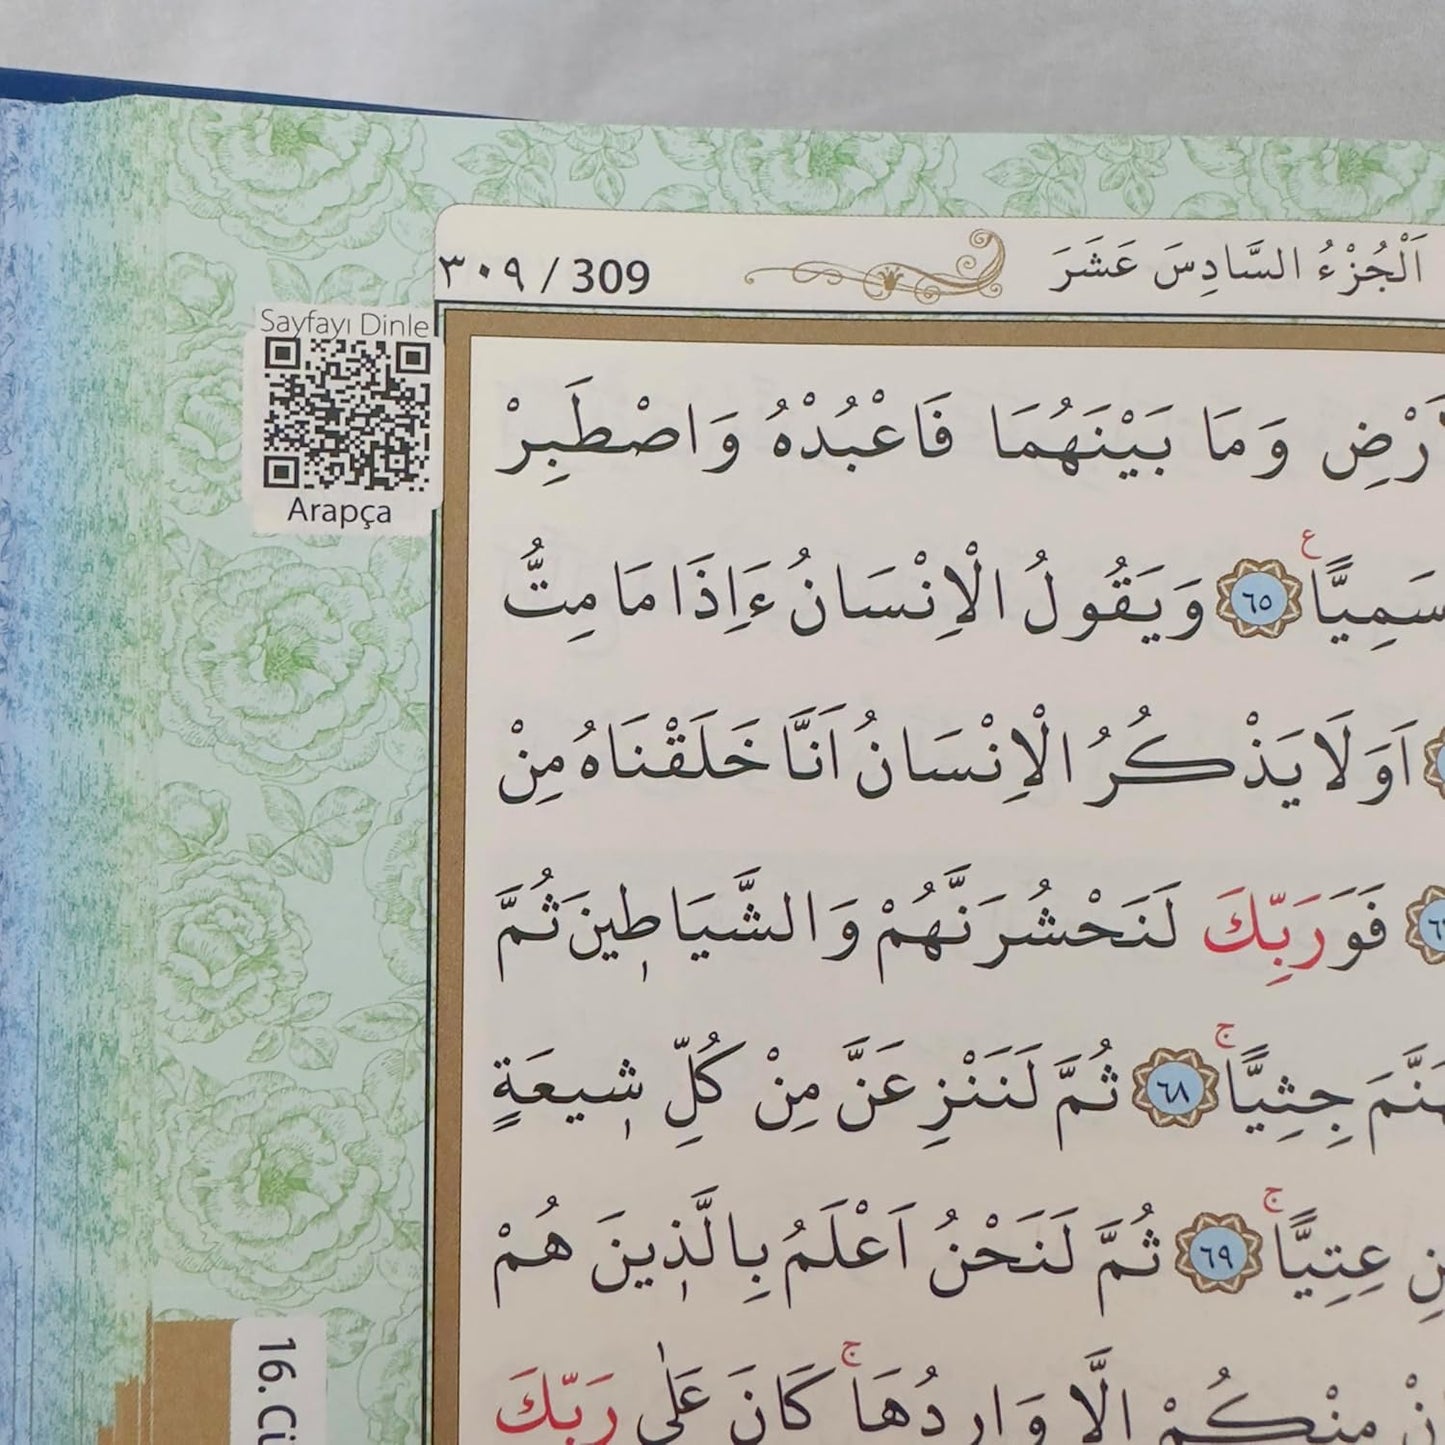 اَلْجُزْءُ السَّادِسَ عَشَرَ
٣٠٩ / 309
Sayfayı Dinle
Arapça
وَمَا بَيْنَهُمَا فَاعْبُدْهُ وَاصْطَبِرْ
سَمِيًّا ع ٦٥ وَيَقُولُ الْاِنْسَانُ ءَاِذَا مَا مِتُّ
اَوَلَا يَذْكُرُ الْاِنْسَانُ اَنَّا خَلَقْنَاهُ مِنْ
فَوَرَبِّكَ لَنَحْشُرَنَّهُمْ وَالشَّيَاط۪ينَ ثُمَّ
جِثِيًّاۚ ٦٨ ثُمَّ لَنَنْزِعَنَّ مِنْ كُلِّ ش۪يعَةٍ
عِتِيًّاۚ ٦٩ ثُمَّ لَنَحْنُ اَعْلَمُ بِالَّذ۪ينَ هُمْ
مِنْكُمْ اِلَّا وَارِدُهَاۚ كَانَ عَلٰى رَبِّكَ
16. Cü